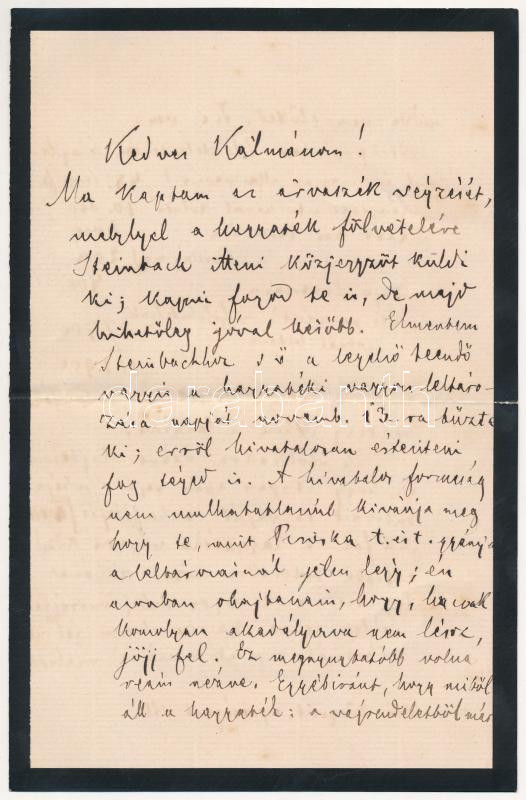 Kedves Kálmánom!
Ma kaptam az árvaszék végzését,
melylyel a hagyaték fölvételére
Steinbach itteni közjegyzőt küldi
ki; kapni fogod te is, de majd
hihetőleg jóval később. Elmentem
Steinbachhoz s ő a legelső teendő
vagyis a hagyatéki vagyon leltáro-
zása napját novemb. 13.ra tűzte
ki; erről hivatalosan értesíteni
fog téged is. A hivatalos formaság
nem mulhatatlanul kivánja meg
hogy te, mint Piroska t. ist. gyámja
a leltározásnál jelen légy; én
azonban ohajtanám, hogy, ha csak
komolyan akadályozva nem lész,
jőjj fel. Ez megnyugtatóbb volna
reám nézve. Egyébiránt, hogy miből
áll a hagyaték: a végrendeletből már
darabanth